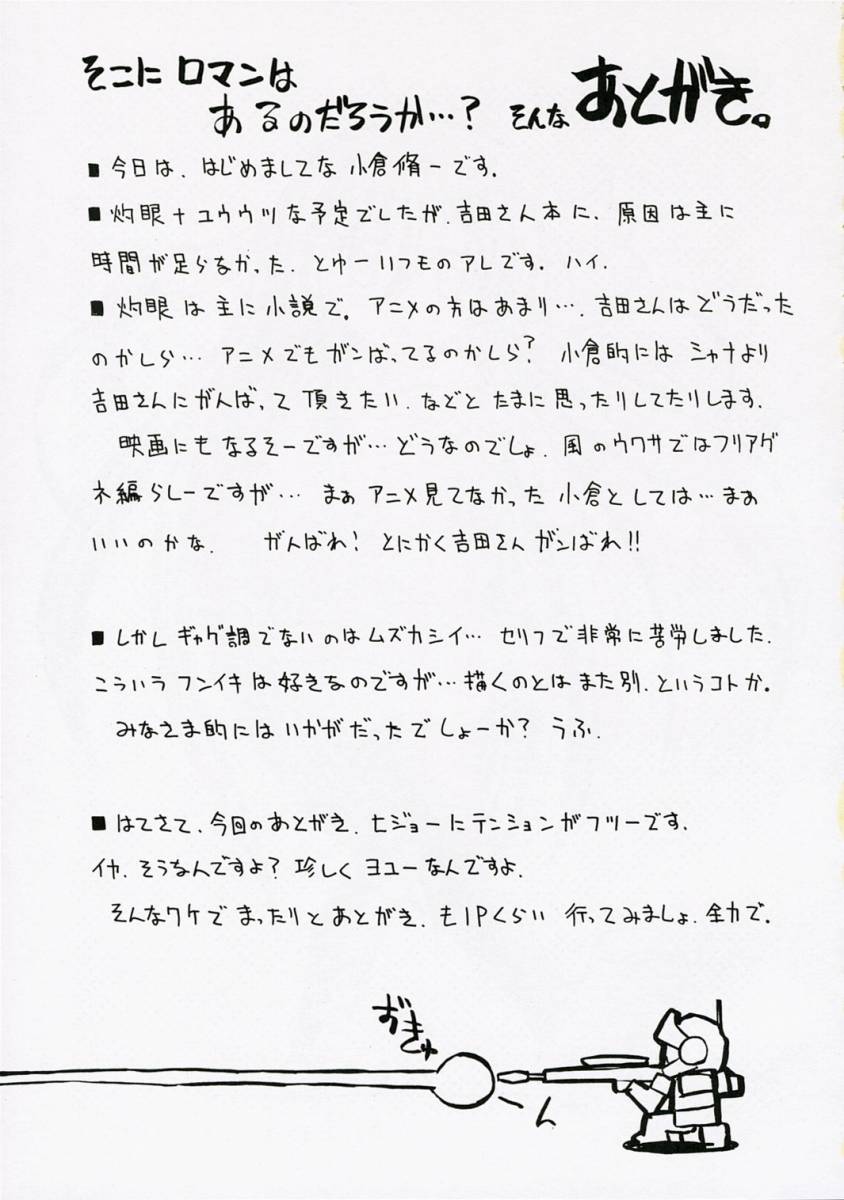 そこに ロマンは
あるのだろうか…? そんな あとがき。
■今日は、はじめましてな 小倉脩一です。
■灼眼+ユウウツな予定でしたが、吉田さん本に、原因は主に
時間が足らなかった、とゆーいつものアレです。ハイ、
■灼眼は主に小説で。アニメの方はあまり…、吉田さんはどうだった
のかしら… アニメでもガンばってるのかしら? 小倉的には シャナより
吉田さんにがんばって頂きたい、などと たまに思ったりしてたりします。
映画にもなるそーですが…どうなのでしょ、風のウワサではフリアグ
ネ編らしーですが… まぁ アニメ見てなかった 小倉としては…まぁ
いいのかな、 がんばれ! とにかく吉田さん ガンばれ!!
■しかし ギャグ調でないのはムズカシイ… セリフで非常に苦労しました、
こういう フンイキは好きなのですが…描くのとは また別、というコトか。
みなさま的には いかがだったでしょーか? うふ、
■はてさて、今回のあとがき、ヒジョーにテンションがフツーです、
イヤ、そうなんですよ? 珍しく ヨユーなんですよ、
そんなワケで まったりと あとがき、も1Pくらい 行ってみましょ、全力で。
おきゅ
ーん